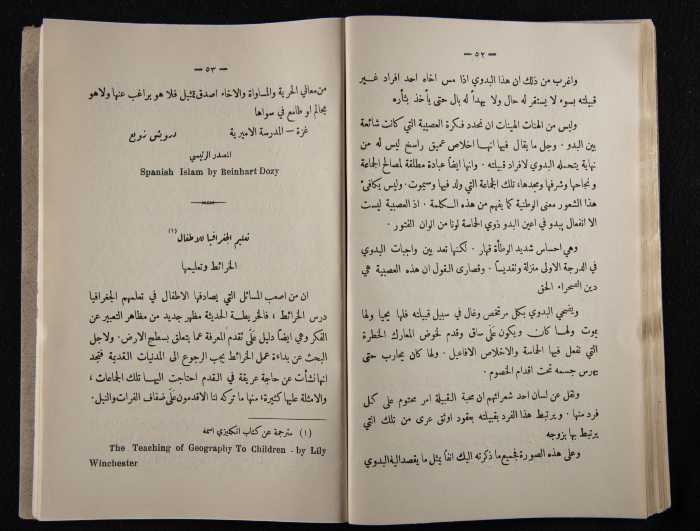 — ٥٢ —
واغرب من ذلك ان هذا البدوي اذا مس اخاه احد افراد غير
قبيلته بسوء لا يستقر له حال ولا يهدأ له بال حتى يأخذ بثأره
وليس من الهنات الهينات ان تحدد فكرة العصبية التي كانت شائعة
بين البدو . وجل ما يقال فيها انها اخلاص عميق راسخ ليس له من
نهاية يتحمله البدوي لافراد قبيلته . وانها ايضاً عبادة مطلقة لمصالح الجماعة
ونجاحها وشرفها ومجدها، تلك الجماعة التي ولد فيها وسيموت . وليس يكافئ
هذا الشعور معنى الوطنية كما يفهم من هذه الكلمة . اذ العصبية ليست
الا انفعال يبدو في اعين البدو ذوي الحماسة لونا من الوان الفتور .
وهي احساس شديد الوطأة قهار . لكنها تعد بين واجبات البدوي
في الدرجة الاولى منزلة وتقديساً . وقصارى القول ان هذه العصبية هي
دين الصحراء الحق
ويضحي البدوي بكل مرتخص وغال في سبيل قبيلته فلها يحيا ولها
يموت ولها كانت ويكون على ساق وقدم لخوض المعارك الخطرة
التي تفعل فيها الحماسة والاخلاص الافاعيل . ولها كان يحارب حتى
يهرس جسمه تحت اقدام الخصوم .
ونقل عن لسان احد شعرائهم ان محبة القبيلة امر محتوم على كل
فرد منها . و يرتبط هذا الفرد بقبيلته بعقود اوثق عرى من تلك التي
يرتبط بها بزوجه
وعلى هذه الصورة فجميع ما ذكرته اليك انفاً يمثل ما يقصد اليه البدوي
— ٥٣ —
من معاني الحرية والمساواة والاخاء اصدق تمثيل فلا هو براغب عنها ولا هو
بحالم او طامع في سواها
غزة – المدرسة الاميرية
المصدر الرئيسي
Spanish Islam by Reinhart Dozy
تعليم الجغرافيا للاطفال (١)
الخرائط وتعليمها
ان من اصعب المسائل التي يصادفها الاطفال في تعلمهم الجغرافيا
درس الخرائط ، فالخريطة الحديثة مظهر جديد من مظاهر التعبير عن
الفكر وهي ايضاً دليل على تقدم المعرفة عما يتعلق بسطح الارض . ولاجل
البحث عن بداءة عمل الخرائط يجب الرجوع الى المدنيات القديمة فتجد
انها نشأت عن حاجة عريقة في القدم احتاجت اليها تلك الجماعات ،
والامثلة عليها كثيرة، منها ما تركه لنا الاقدمون على ضفاف الفرات والنيل.
(١) مترجمة عن كتاب انكليزي اسمه
The Teaching of Geography To Children - by Lily
Winchester